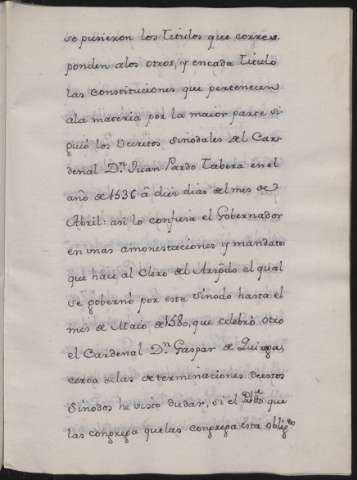 se pusieron los titulos que corres
ponden alos otros, y encada titulo
las constituciones que pertenecen
ala materia por la maior parte si
guió los Decretos Sinodales del Car-
denal Dn. Juan Pardo Tabera en el
año de 1536 â diez dias del mes de
Abril: asi lo confiesa el Gobernador
en unas amonestaciones y mandato
que hace al Clero del Arzpdo el qual
se gobernó por este Sinodo hasta el
mes de Maio, de 1580, que celebró otro
el Cardenal Dn. Gaspar de Quiroga,
cerca delas determinaciones destos
Sinodos he visto dudar, si el que
las congrega que las congrega esta oblig.do